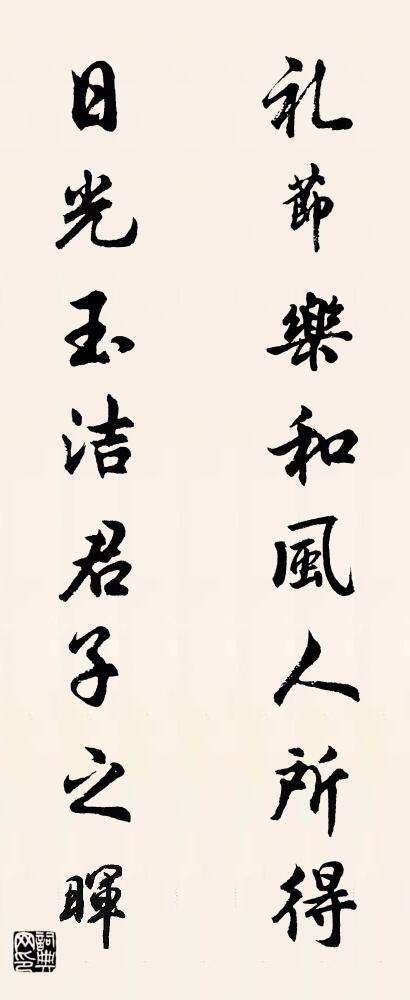 礼節樂和風人所得
日光玉洁君子之暉